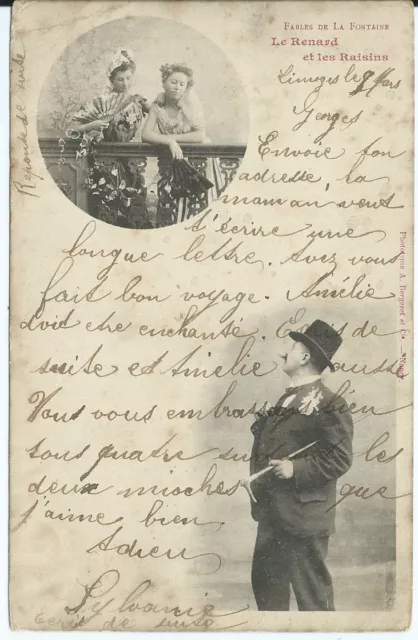 FABLES DE LA FONTAINE
Le Renard
et les Raisins
Limoges le 7 Mars
Georges
Envoie ton
adresse ta
maman veut
t'écrire une
longue lettre. Avez vous
fait bon voyage. Amélie
doit etre enchanté. Ecris de
suite et Amélie aussi
Nous vous embrassons bien
tous quatre surtout les
deux mioches que
j'aime bien
Adieu
Sylvanie
Ecris de suite
Reponse de suite
Phototypie A. Bergeret et Cie. — Nancy